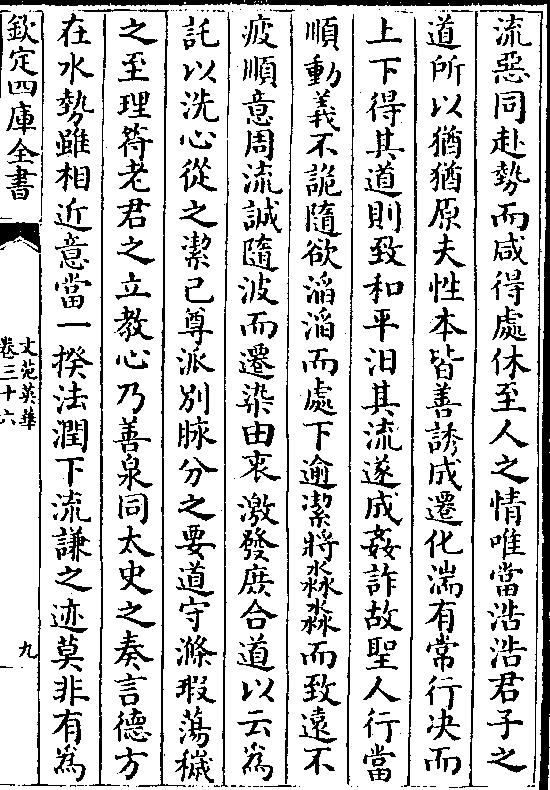 流惡同赴勢而咸得處休至人之情唯當浩浩君子之
道所以猶猶原夫性本皆善誘成遷化湍有常行决而
上下得其道則致和平汩其流遂成姦詐故聖人行當
順動義不詭隨欲滔滔而處下逾潔將淼淼而致遠不
疲順意周流誠隨波而遷染由衷激發庶合道以云為
託以洗心從之潔已尊派別脉分之要道守滌瑕蕩穢
之至理符老君之立教心乃善泉同太史之奏言德方
在水勢雖相近意當一揆法潤下流謙之迹莫非有為
欽定四庫全書
文苑英華
卷三十六
九